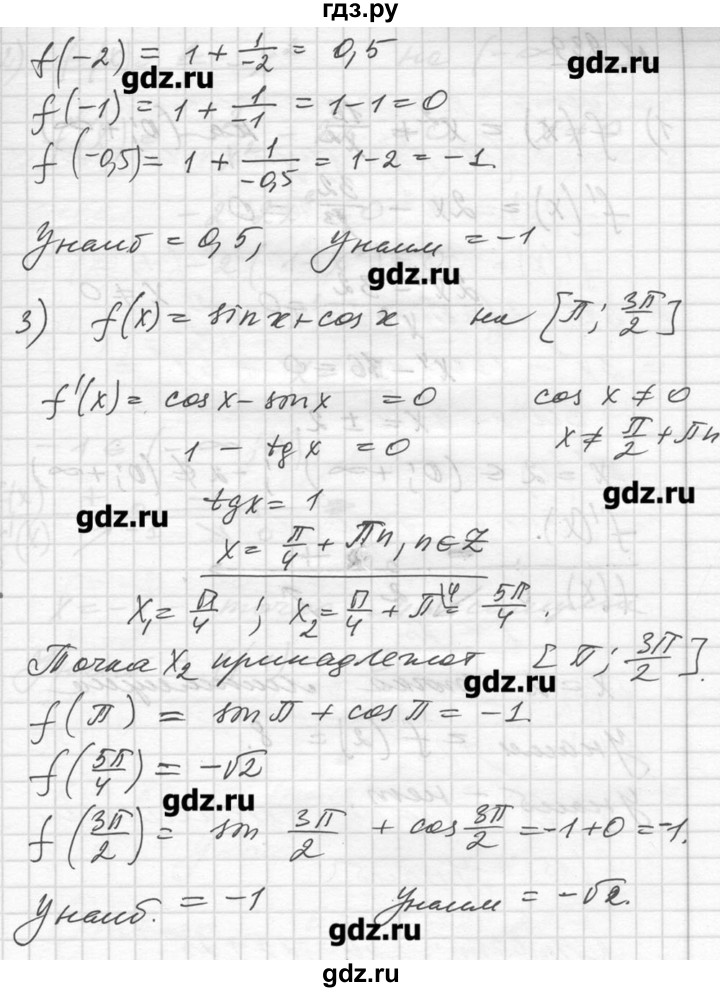 гдз.ру
f(-2) = 1 + 1/-2 = 0,5
gdz.ru
gdz.ru
f(-1) = 1 + 1/-1 = 1-1=0
f(-0,5) = 1 + 1/-0,5 = 1-2 = -1.
Унаиб = 0,5, Унаим = -1
gdz.ru
3) f(x) = sin x + cos x на [π; 3π/2]
f'(x) = cos x - sin x = 0 cos x ≠ 0
1 - tg x = 0 x ≠ π/2 + πn
gdz.ru
tg x = 1
gdz.ru
x = π/4 + πn, n∈Z
x₁ = π/4 ; x₂ = π/4 + π\4 = 5π/4.
Точка x₂ принадлежит [π; 3π/2].
gdz.ru
f(π) = sin π + cos π = -1.
f(5π/4) = -√2
gdz.ru
f(3π/2) = sin 3π/2 + cos 3π/2 = -1+0 = -1.
Унаиб. = -1 Унаим = -√2.
gdz.ru
gdz.ru